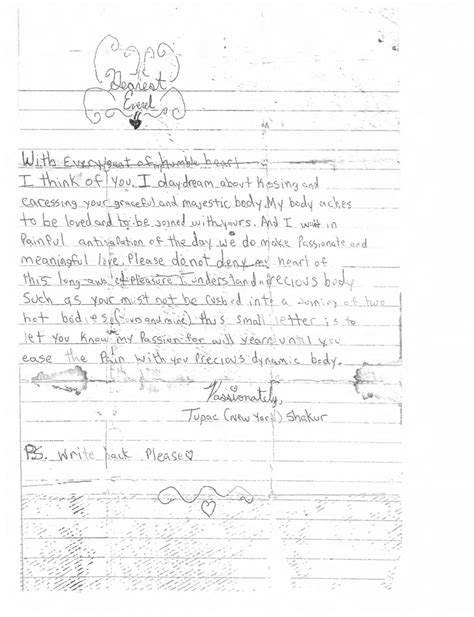 Dearest
With Every beat of humble heart
I think of you. I daydream about Kissing and
caressing your graceful and majestic body. My body aches
to be loved and to be joined with yours. And I wait in
Painful anticipation of the day we do make Passionate and
meaningful love. Please do not deny my heart of
this long pleasure I understand precious body
Such as your must not be rushed into a Joining of two
hot bodies, (yours and mine) this small letter is to
let you know my Passion for will yearn until you
ease the Pain with you Precious dynamic body.
Passionately,
Tupac (New York) Shakur
P.S. Write back Please♡